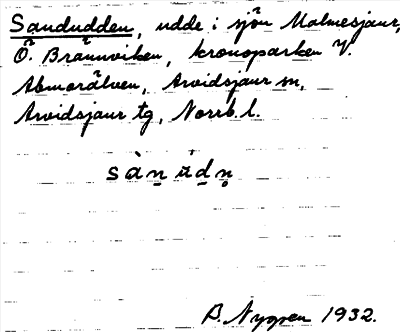 Sandudden, udde i sjön Malmesjaur,
Ö. Brännviken, kronoparken V.
Abmorälven, Arvidsjaur sn,
Arvidsjaur tg, Norrb. l.
sàn ùdn̥
B. Nygren 1932.